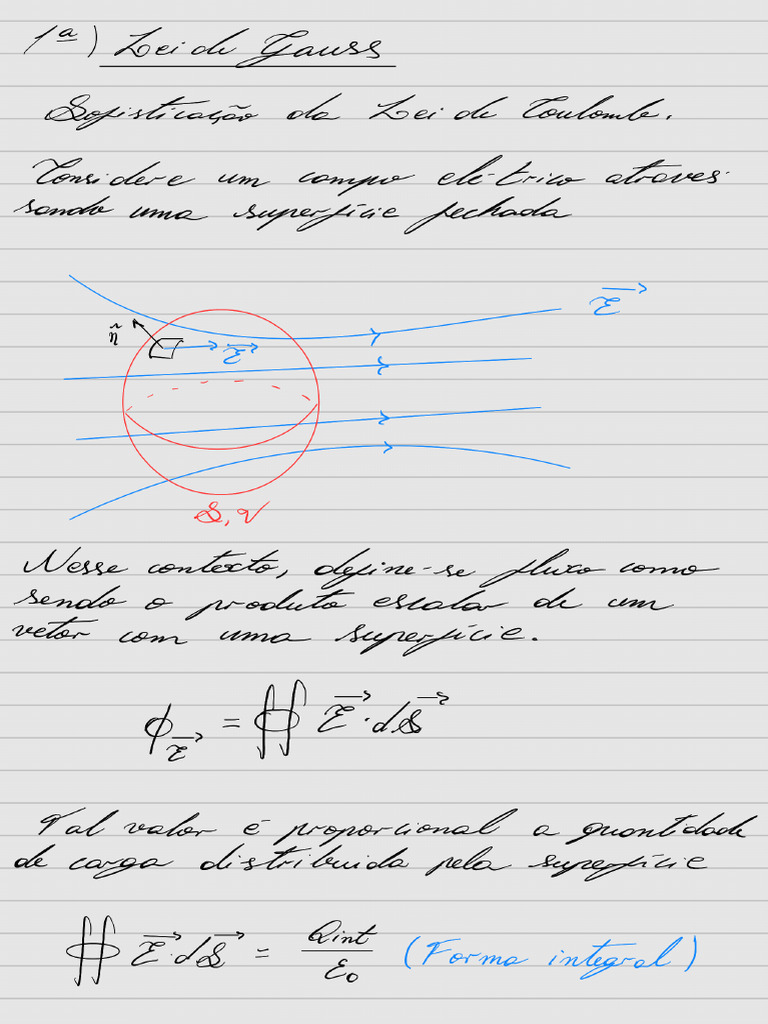 1ª) Lei de Gauss
Sofisticação da Lei de Coulomb.
Considere um campo elétrico atraves-
sando uma superfície fechada
E⃗
n̂
E⃗
S, V
Nesse contexto, define-se fluxo como
sendo o produto escalar de um
vetor com uma superfície.
ϕ_E⃗ = ∯ E⃗ · dS⃗
Tal valor é proporcional a quantidade
de carga distribuida pela superfície
∯ E⃗ · dS⃗ = Qint/ε₀ (Forma integral)